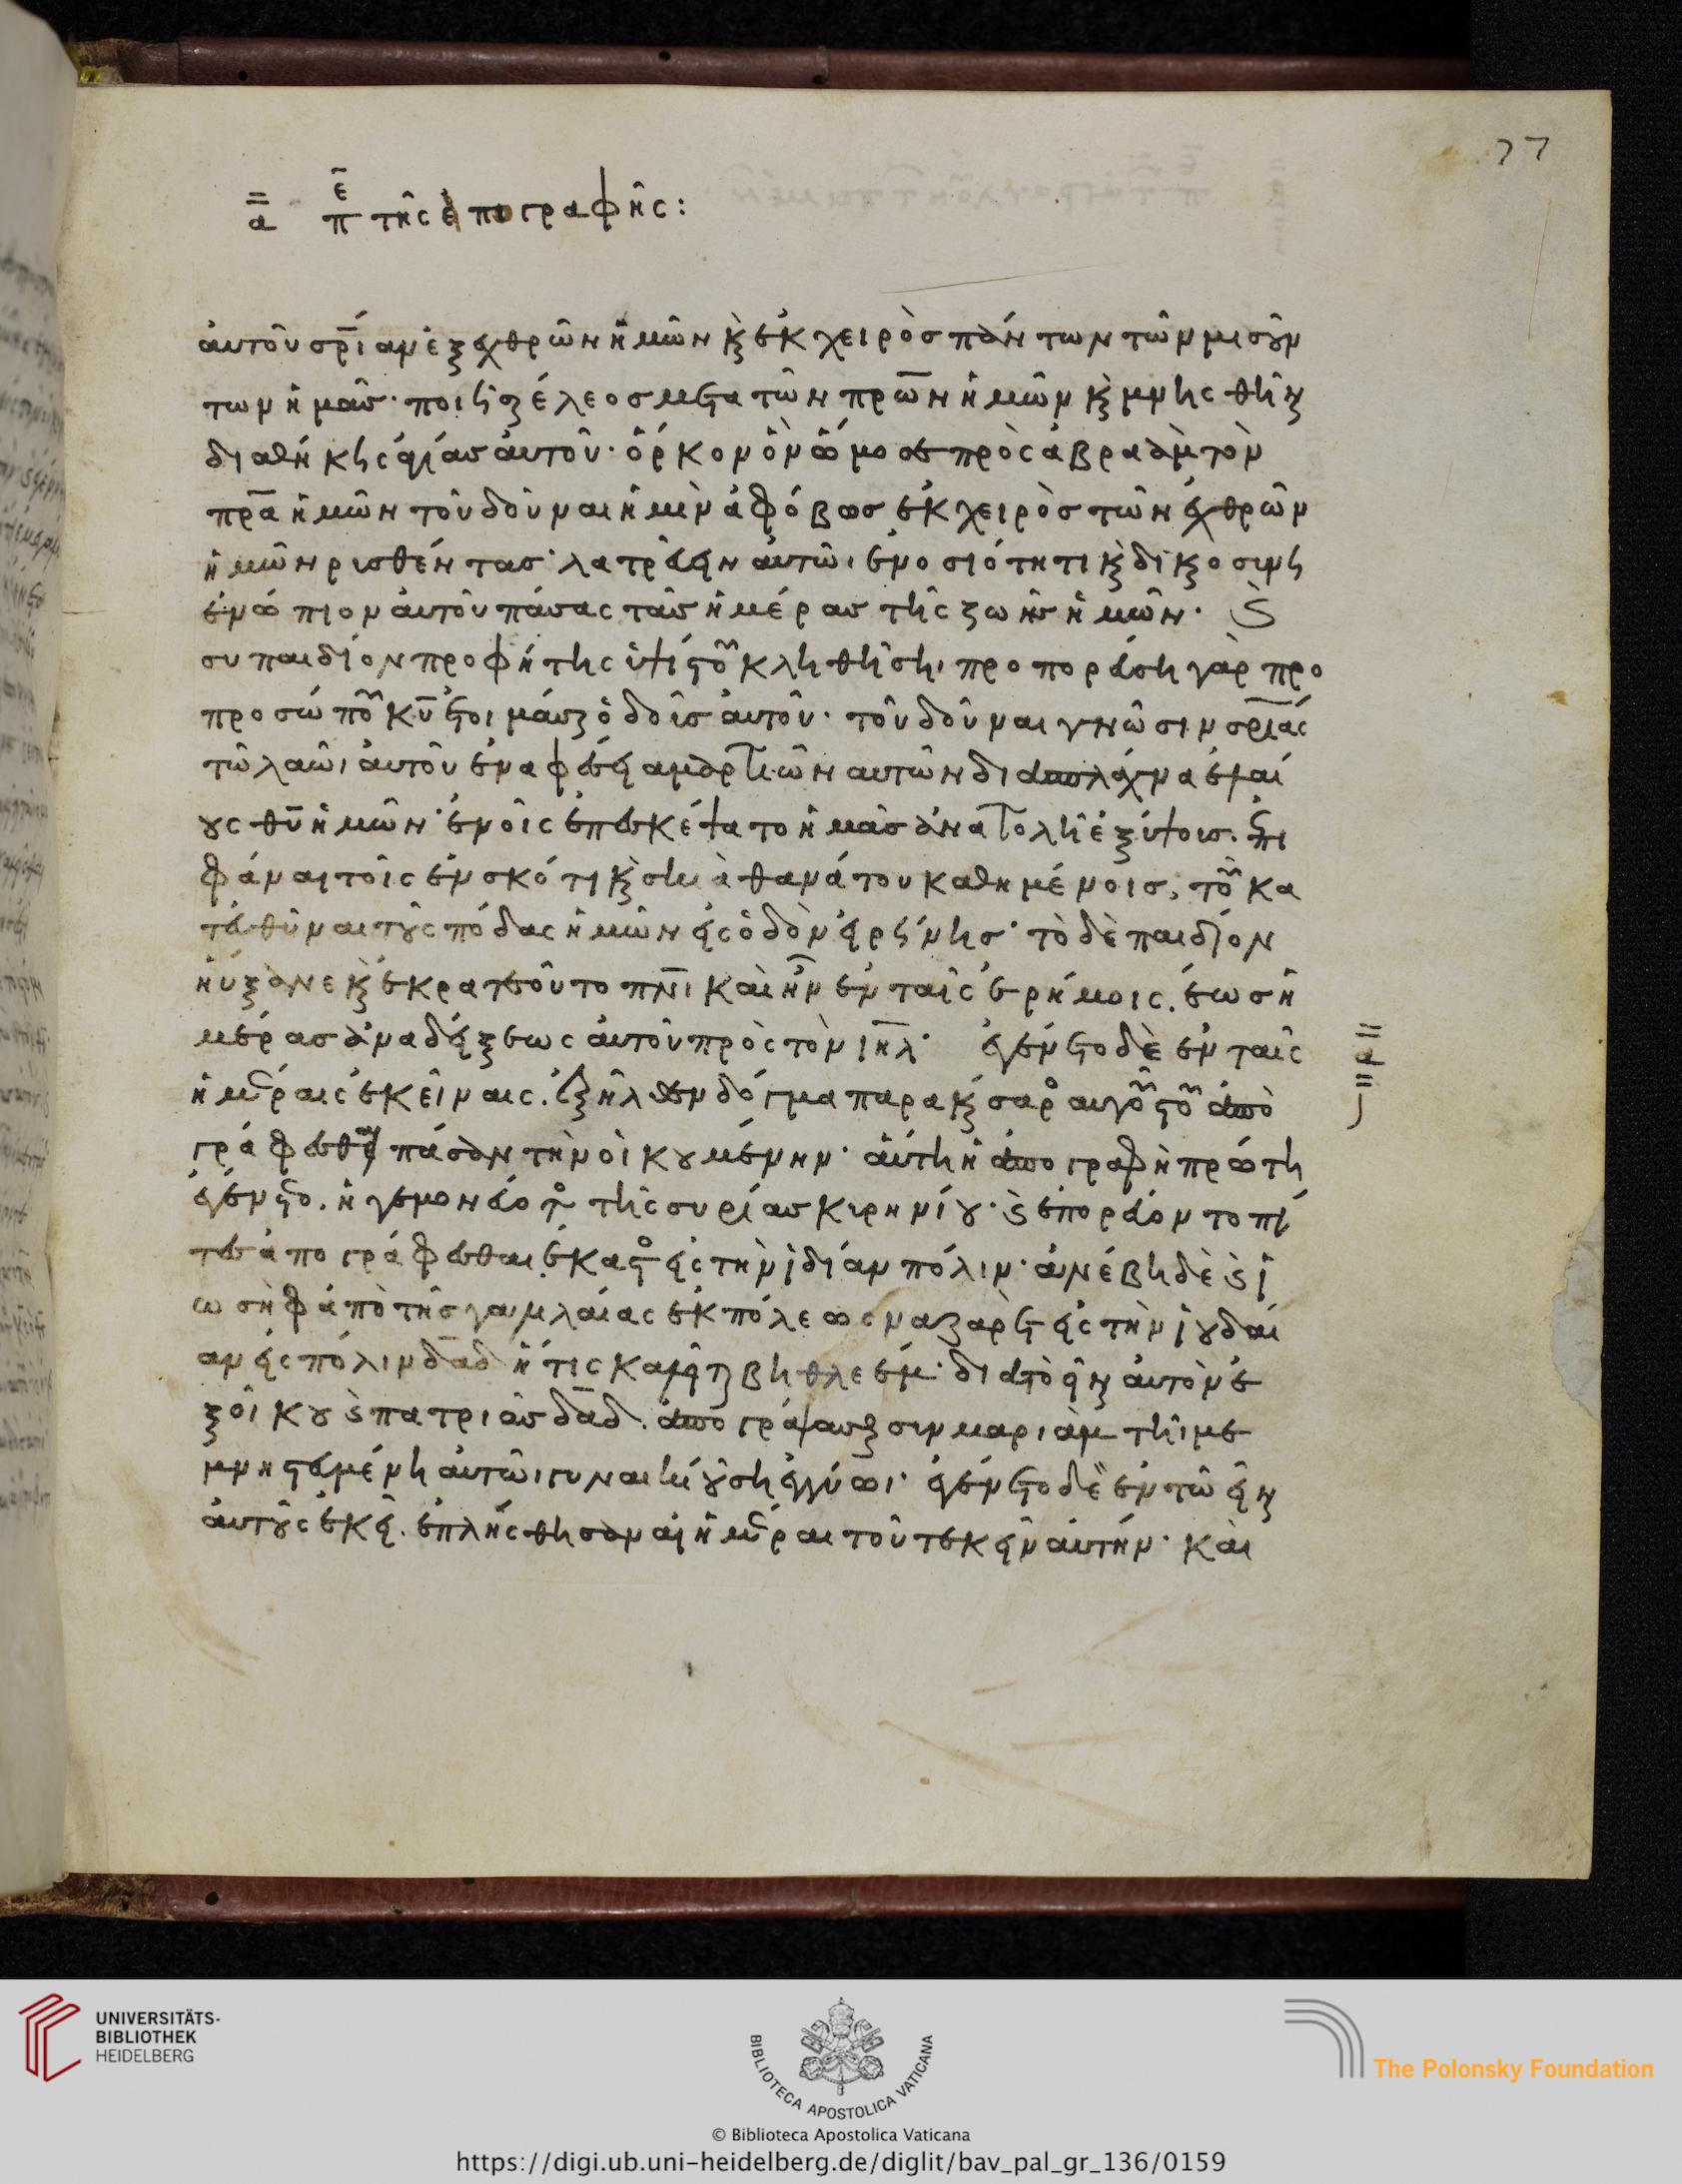 77
α πε τῆς ἐπιγραφῆς:
αὐτοῦ σρίαν ἐξ ἐχθρῶν ἡμῶν κ̀ ἐκ χειρὸσ πάντων τῶν μισούν
των ἡμᾶσ· ποιῆσαι ἔλεοσ μετα τῶν πρων ἡμῶν κ̀ μνησθῆναι
διαθήκης ἁγίασ αὐτοῦ· ὅρκον ὃν ὤμοσε πρὸς ἀβραὰμ τὸν
πρα ἡμῶν τοῦ δοῦναι ἡμῖν ἀφόβωσ ἐκ χειρὸσ τῶν ἐχθρῶν
ἡμῶν ρισθέντασ· λατρεύειν αὐτῶι ἐν ὁσιότητι κ̀ δικαιοσύνη
ἐνώπιον αὐτοῦ πάσας τὰσ ἡμέρασ τῆς ζωῆσ ἡμῶν· ϗ
συ παιδίον προφήτης ὑψίστου κληθήση, προπορεύση γὰρ προ
προσώπου κυ ἑτοιμάσαι ὁδοὺσ αὐτοῦ· τοῦ δοῦναι γνῶσιν σρίας
τῶ λαῶι αὐτοῦ ἐν αφέσει αμαρτιῶν αυτῶν δια σπλάχνα ἐλέ
ους θυ ἡμῶν· ἐν οἷς ἐπεσκέψατο ἡμᾶσ ἀνατολὴ ἐξ ὕψουσ. ἐπι
φάναι τοῖς ἐν σκότι κ̀ σκιᾶ θανάτου καθημένοισ, τοῦ κα
τευθῦναι τοὺς πόδας ἡμῶν εἰς ὁδὸν εἰρήνησ· τὸ δὲ παιδίον
ηὔξανε κ̀ ἐκραταιοῦτο πνι καὶ ἦν ἐν ταῖς ἐρήμοις. ἕωσ ἡ
μέρασ ἀναδείξεως αὐτοῦ πρὸς τὸν ιηλ· ἐγένετο δὲ ἐν ταῖς
ἡμέραις ἐκείναις. ἐξῆλθεν δόγμα παρα καίσαρος αυγούστου ἀπὸ
γράφεσθαι πάσαν τὴν οἰκουμένην· αὕτη ἡ ἀπογραφὴ πρώτη
ἐγένετο. ἡγεμονεύοντος τῆς συρίασ κιρηνίου· ϗ ἐπορεύοντο πά
ντεσ ἀπογράφεσθαι ἕκαστος εἰς τὴν ἰδίαν πόλιν· ἀνέβη δὲ ϗ ἰ
ωσὴφ ἀπὸ τῆσ γαλιλαίας ἐκ πόλεως ναζαρὲτ εἰς τὴν ἰουδαί
αν εἰς πόλιν δαδ ἥτις καλεῖται βηθλεέμ· δια τὸ εἶναι αὐτὸν ἐ
ξ οἴκου ϗ πατριᾶσ δαδ. ἀπογράψασθαι συν μαριὰμ τῆι με
μνηστευμένη αὐτῶι γυναικί οὔση ἐγκύωι· ἐγένετο δὲ ἐν τῶ εἶναι
αὐτοὺς ἐκεῖ. ἐπλήσθησαν αἱ ἡμέραι τοῦ τεκεῖν αὐτήν· καὶ
UNIVERSITÄTS-
BIBLIOTHEK
HEIDELBERG
BIBLIOTECA APOSTOLICA VATICANA
The Polonsky Foundation
© Biblioteca Apostolica Vaticana
https://digi.ub.uni-heidelberg.de/diglit/bav_pal_gr_136/0159